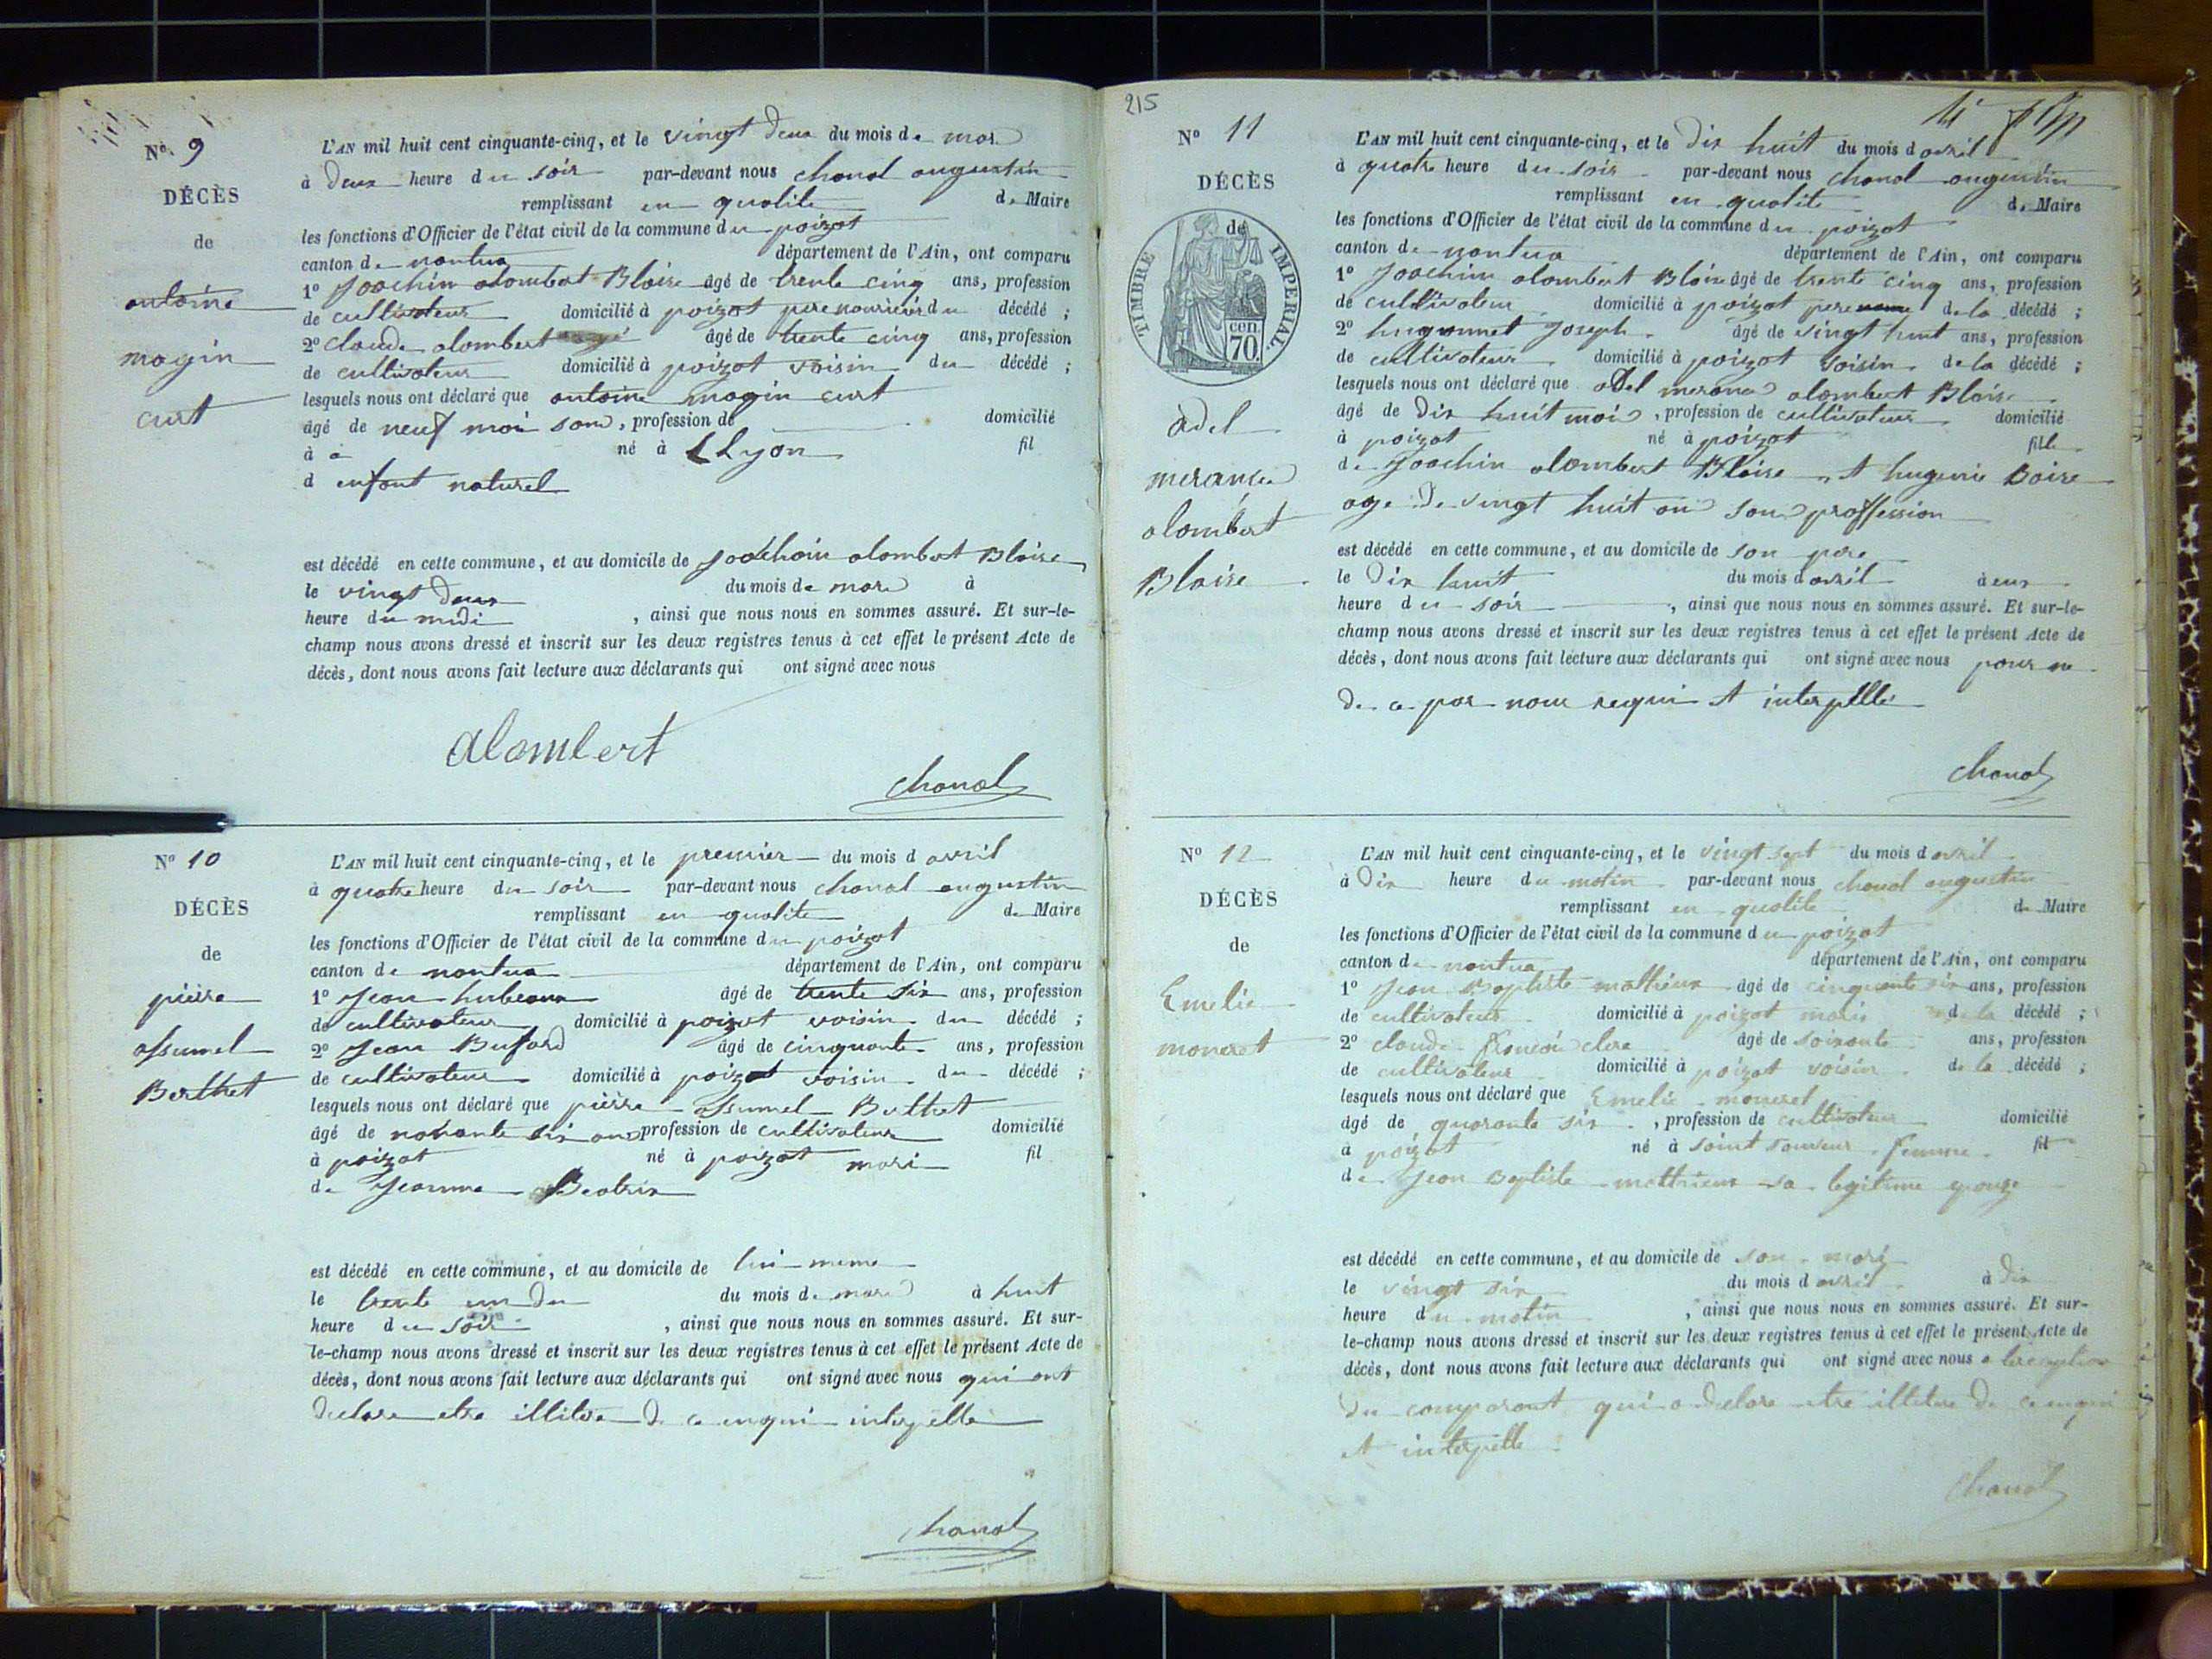 N° 9
DÉCÈS
de
antoine
magin
curt
L'AN mil huit cent cinquante-cinq, et le vingt deux du mois de mars
à deux heure du soir par-devant nous chanal augustin
remplissant en qualite de Maire
les fonctions d'Officier de l'état civil de la commune du poizat
canton de nantua département de l'Ain, ont comparu
1° Joachin alombert Blaise âgé de trente cinq ans, profession
de cultivateur domicilié à poizat pere nouricier du décédé ;
2° claude alombert âgé de trente cinq ans, profession
de cultivateur domicilié à poizat voisin du décédé ;
lesquels nous ont déclaré que antoine magin curt
âgé de neuf moi sans, profession de domicilié
à a né à Lyon fil
d enfant naturel
est décédé en cette commune, et au domicile de Joachain alombert Blaise
le vingt deux du mois de mars à
heure du midi , ainsi que nous nous en sommes assuré. Et sur-le-
champ nous avons dressé et inscrit sur les deux registres tenus à cet effet le présent Acte de
décès, dont nous avons fait lecture aux déclarants qui ont signé avec nous
alombert
chanal
N° 10
DÉCÈS
de
pierre
assumel
Berthet
L'AN mil huit cent cinquante-cinq, et le premier du mois d avril
à quatre heure du soir par-devant nous chanal augustin
remplissant en qualite de Maire
les fonctions d'Officier de l'état civil de la commune du poizat
canton de nantua département de l'Ain, ont comparu
1° Jean âgé de trente six ans, profession
de cultivateur domicilié à poizat voisin du décédé ;
2° Jean Bufard âgé de cinquante ans, profession
de cultivateur domicilié à poizat voisin du décédé ;
lesquels nous ont déclaré que pierre assumel Berthet
âgé de nonante six ans profession de cultivateur domicilié
à poizat né à poizat mari fil
de Jeanne Beatrix
est décédé en cette commune, et au domicile de lui meme
le trente un du du mois de mars à huit
heure du soir , ainsi que nous nous en sommes assuré. Et sur-
le-champ nous avons dressé et inscrit sur les deux registres tenus à cet effet le présent Acte de
décès, dont nous avons fait lecture aux déclarants qui ont signé avec nous qui ont
declare etre illitere de ce enqui interpelle
chanal
215
N° 11
DÉCÈS
de
TIMBRE IMPERIAL.
cen.
70.
adel
merance
alombert
Blaise
L'AN mil huit cent cinquante-cinq, et le dix huit du mois d avril
à quatre heure du soir par-devant nous chanal augustin
remplissant en qualite de Maire
les fonctions d'Officier de l'état civil de la commune du poizat
canton de nantua département de l'Ain, ont comparu
1° Joachin alombert Blaise âgé de trente cinq ans, profession
de cultivateur domicilié à poizat pere de la décédé ;
2° hugonnet Joseph âgé de vingt huit ans, profession
de cultivateur domicilié à poizat voisin de la décédé ;
lesquels nous ont déclaré que adel alombert Blaise
âgé de dix huit mois , profession de cultivateur domicilié
à poizat né à poizat fille
de Joachin alombert Blaise et hugenie Boire
age de vingt huit an sans proffession
est décédé en cette commune, et au domicile de son pere
le dix huit du mois d avril
heure du soir , ainsi que nous nous en sommes assuré. Et sur-le-
champ nous avons dressé et inscrit sur les deux registres tenus à cet effet le présent Acte de
décès, dont nous avons fait lecture aux déclarants qui ont signé avec nous
de ce par nous requi et interpellé
chanal
N° 12
DÉCÈS
de
Emelie
moneret
L'AN mil huit cent cinquante-cinq, et le vingt sept du mois d avril
à dix heure du matin par-devant nous chanal augustin
remplissant en qualite de Maire
les fonctions d'Officier de l'état civil de la commune du poizat
canton de nantua département de l'Ain, ont comparu
1° Jean Baptiste mathieux âgé de cinquante six ans, profession
de cultivateur domicilié à poizat mari de la décédé ;
2° claude françoi clere âgé de soixante ans, profession
de cultivateur domicilié à poizat voisin de la décédé ;
lesquels nous ont déclaré que Emelie moneret
âgé de quarante six , profession de cultivateur domicilié
à poizat né à saint sauveur femme fil
de Jean Baptiste matthieux sa legitime epouze
est décédé en cette commune, et au domicile de son mari
le vingt six du mois d avril à dix
heure du matin , ainsi que nous nous en sommes assuré. Et sur-
le-champ nous avons dressé et inscrit sur les deux registres tenus à cet effet le présent Acte de
décès, dont nous avons fait lecture aux déclarants qui ont signé avec nous a
du comparant qui a declare etre illetere de ce enqui
et interpelle
chanal